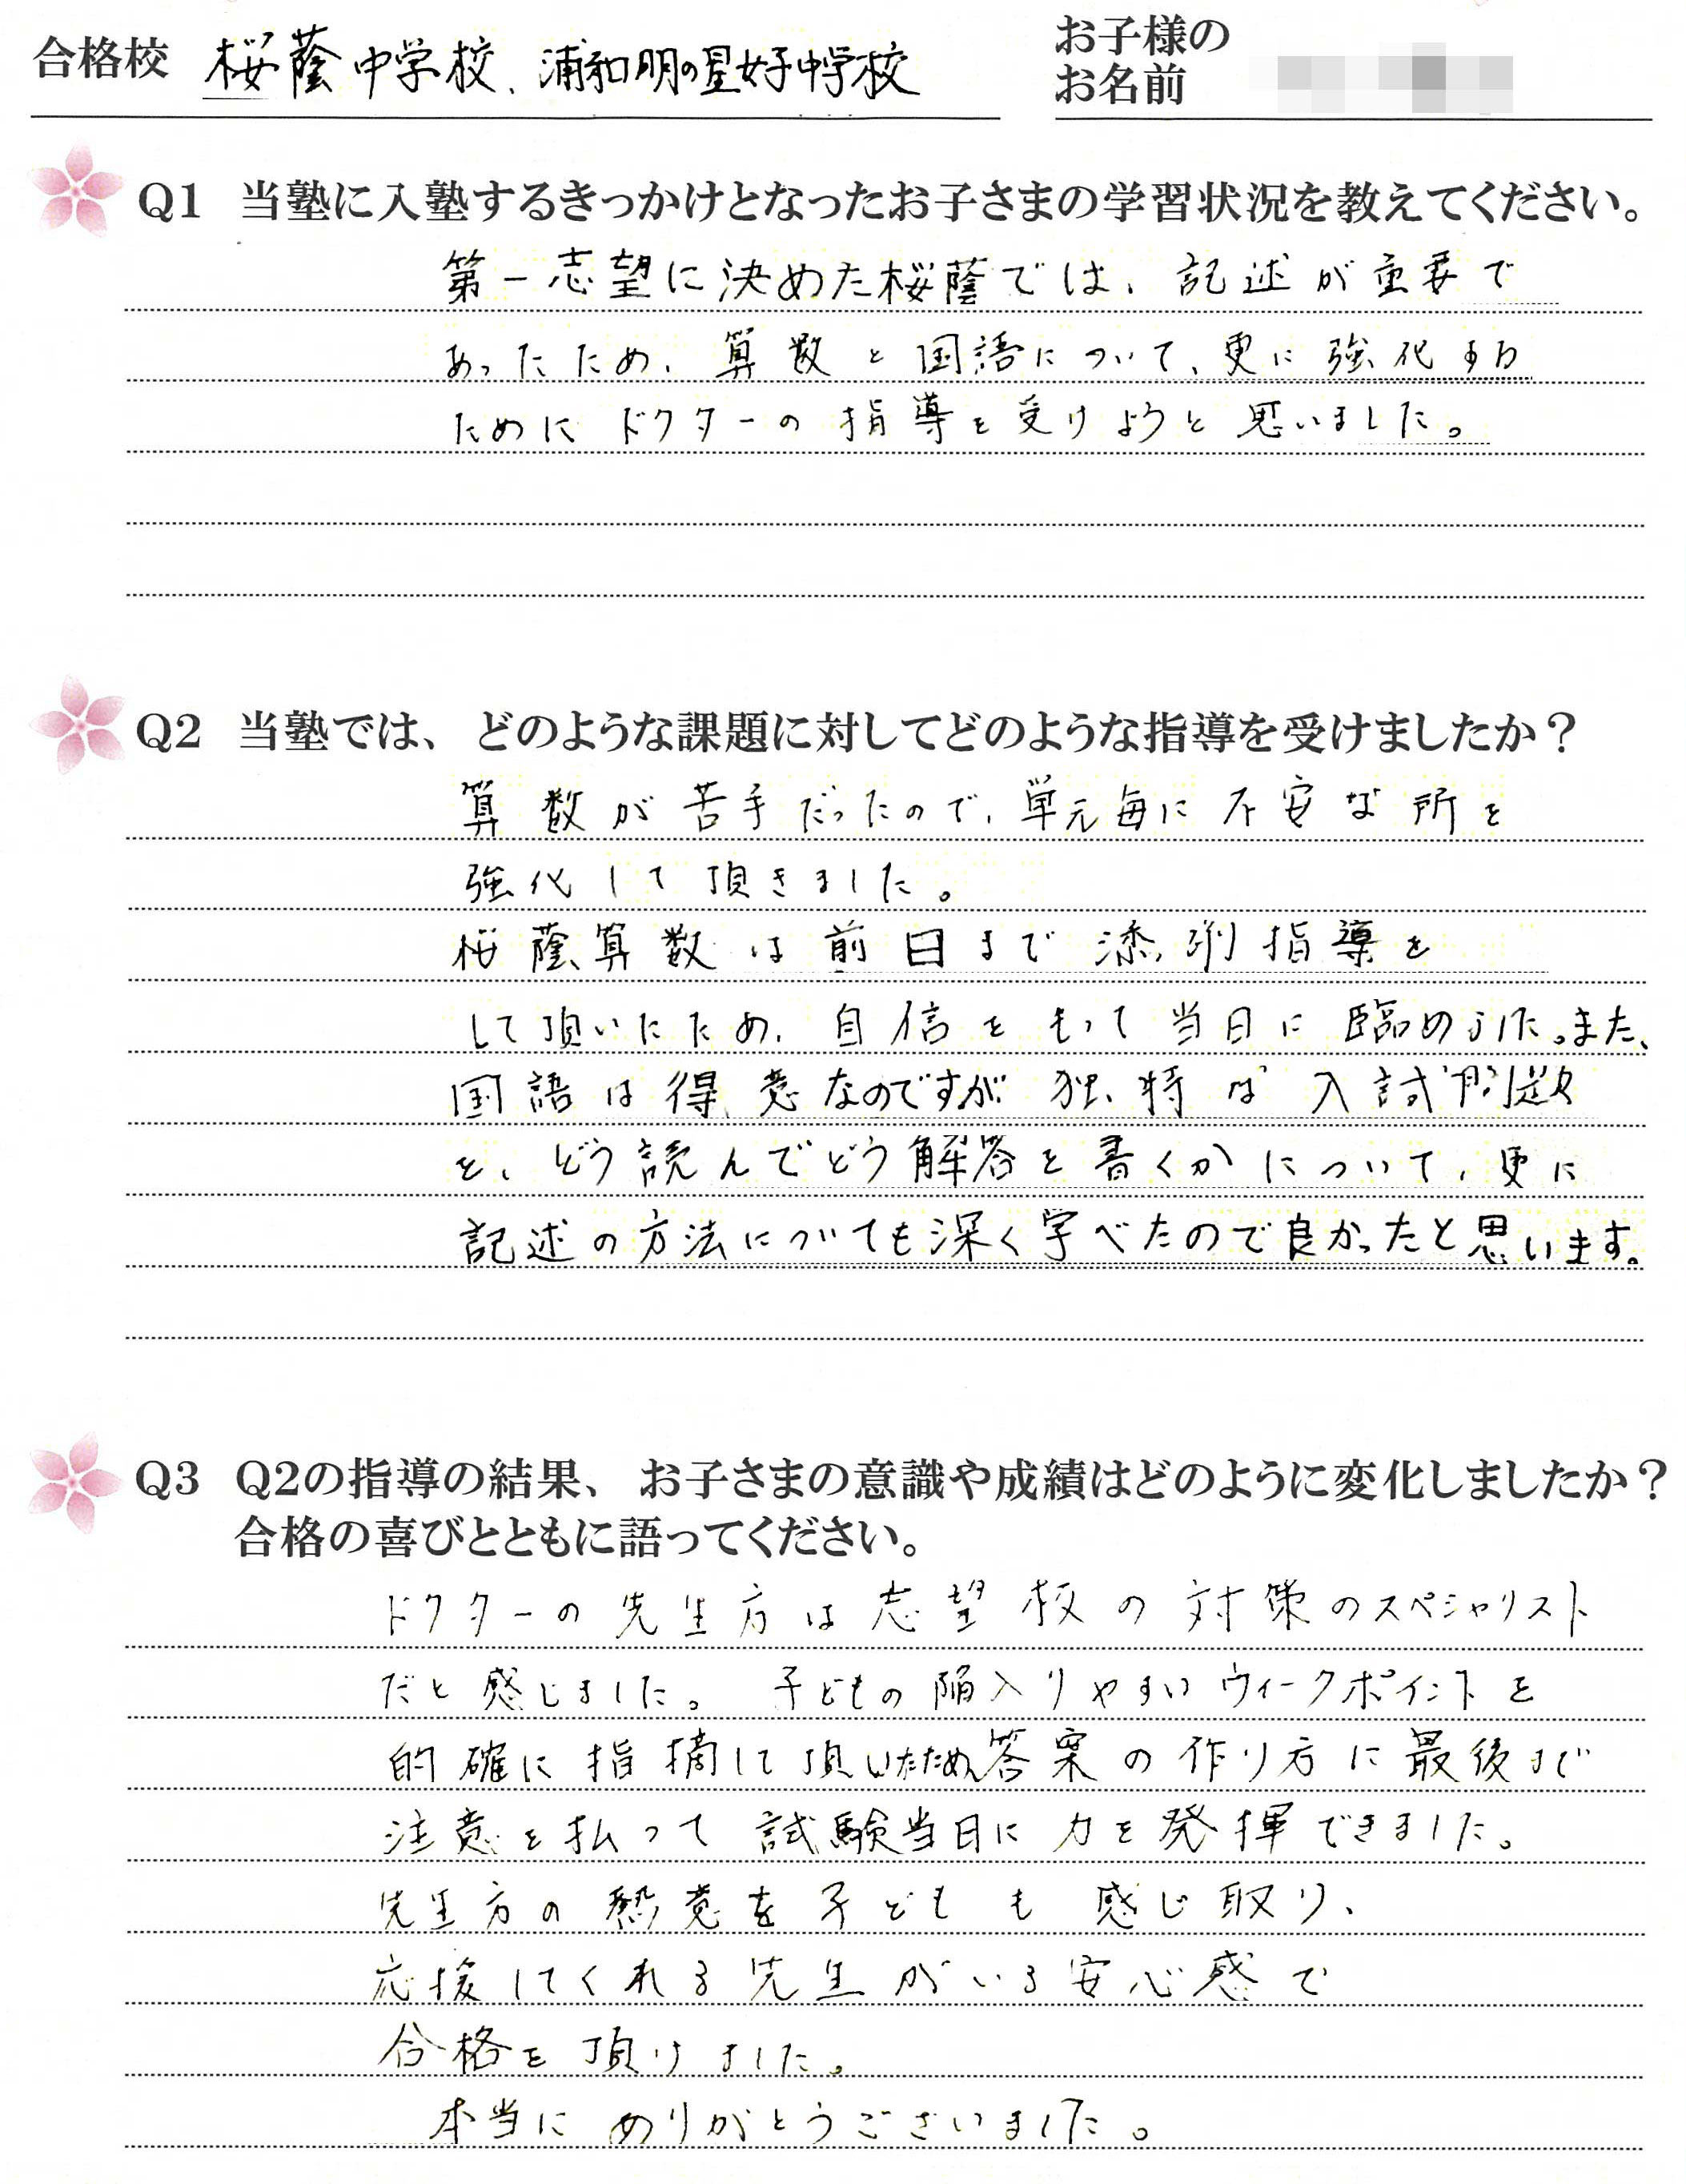 合格校 桜蔭中学校、浦和明の星女子中学校
お子様の
お名前
Q1 当塾に入塾するきっかけとなったお子さまの学習状況を教えてください。
第一志望に決めた桜蔭では、記述が重要で
あったため、算数と国語について、更に強化する
ためにドクターの指導を受けようと思いました。
Q2 当塾では、どのような課題に対してどのような指導を受けましたか？
算数が苦手だったので、単元毎に不安な所を
強化して頂きました。
桜蔭算数は前日まで添削指導を
して頂いたため、自信をもって当日に臨めました。また、
国語は得意なのですが独特な入試問題
を、どう読んでどう解答を書くかについて、更に
記述の方法についても深く学べたので良かったと思います。
Q3 Q2の指導の結果、お子さまの意識や成績はどのように変化しましたか？
合格の喜びとともに語ってください。
ドクターの先生方は志望校の対策のスペシャリスト
だと感じました。子どもの陥入りやすいウィークポイントを
的確に指摘して頂いたため答案の作り方に最後まで
注意を払って試験当日に力を発揮できました。
先生方の熱意を子どもも感じ取り、
応援してくれる先生がいる安心感で
合格を頂けました。
本当にありがとうございました。